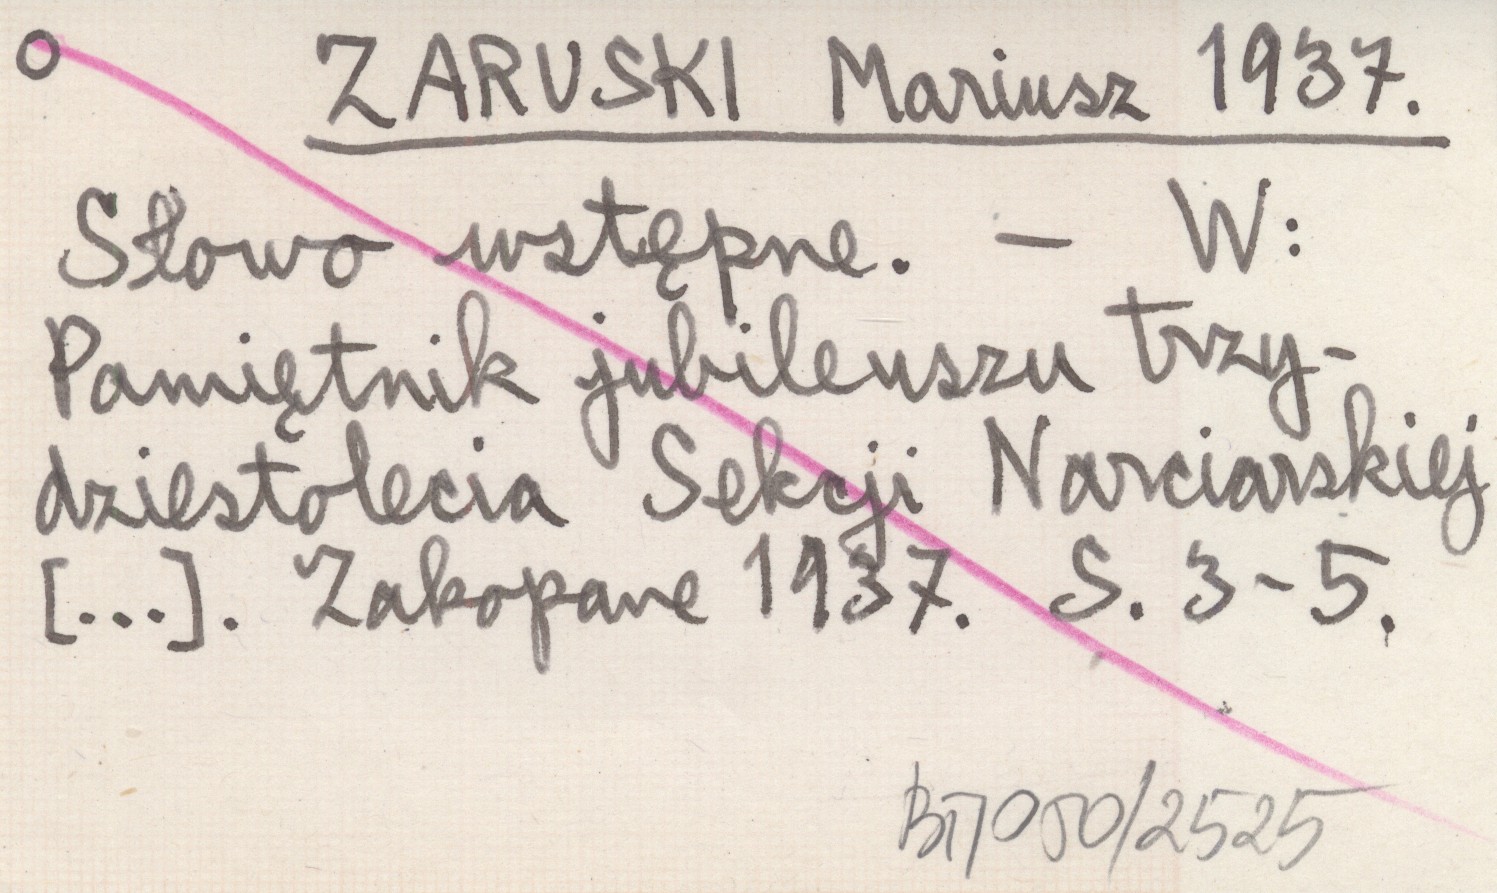 O ZARUSKI Mariusz 1937.
Słowo wstępne. – W:
Pamiętnik jubileuszu trzy-
dziestolecia Sekcji Narciarskiej
[...]. Zakopane 1937. S. 3-5.